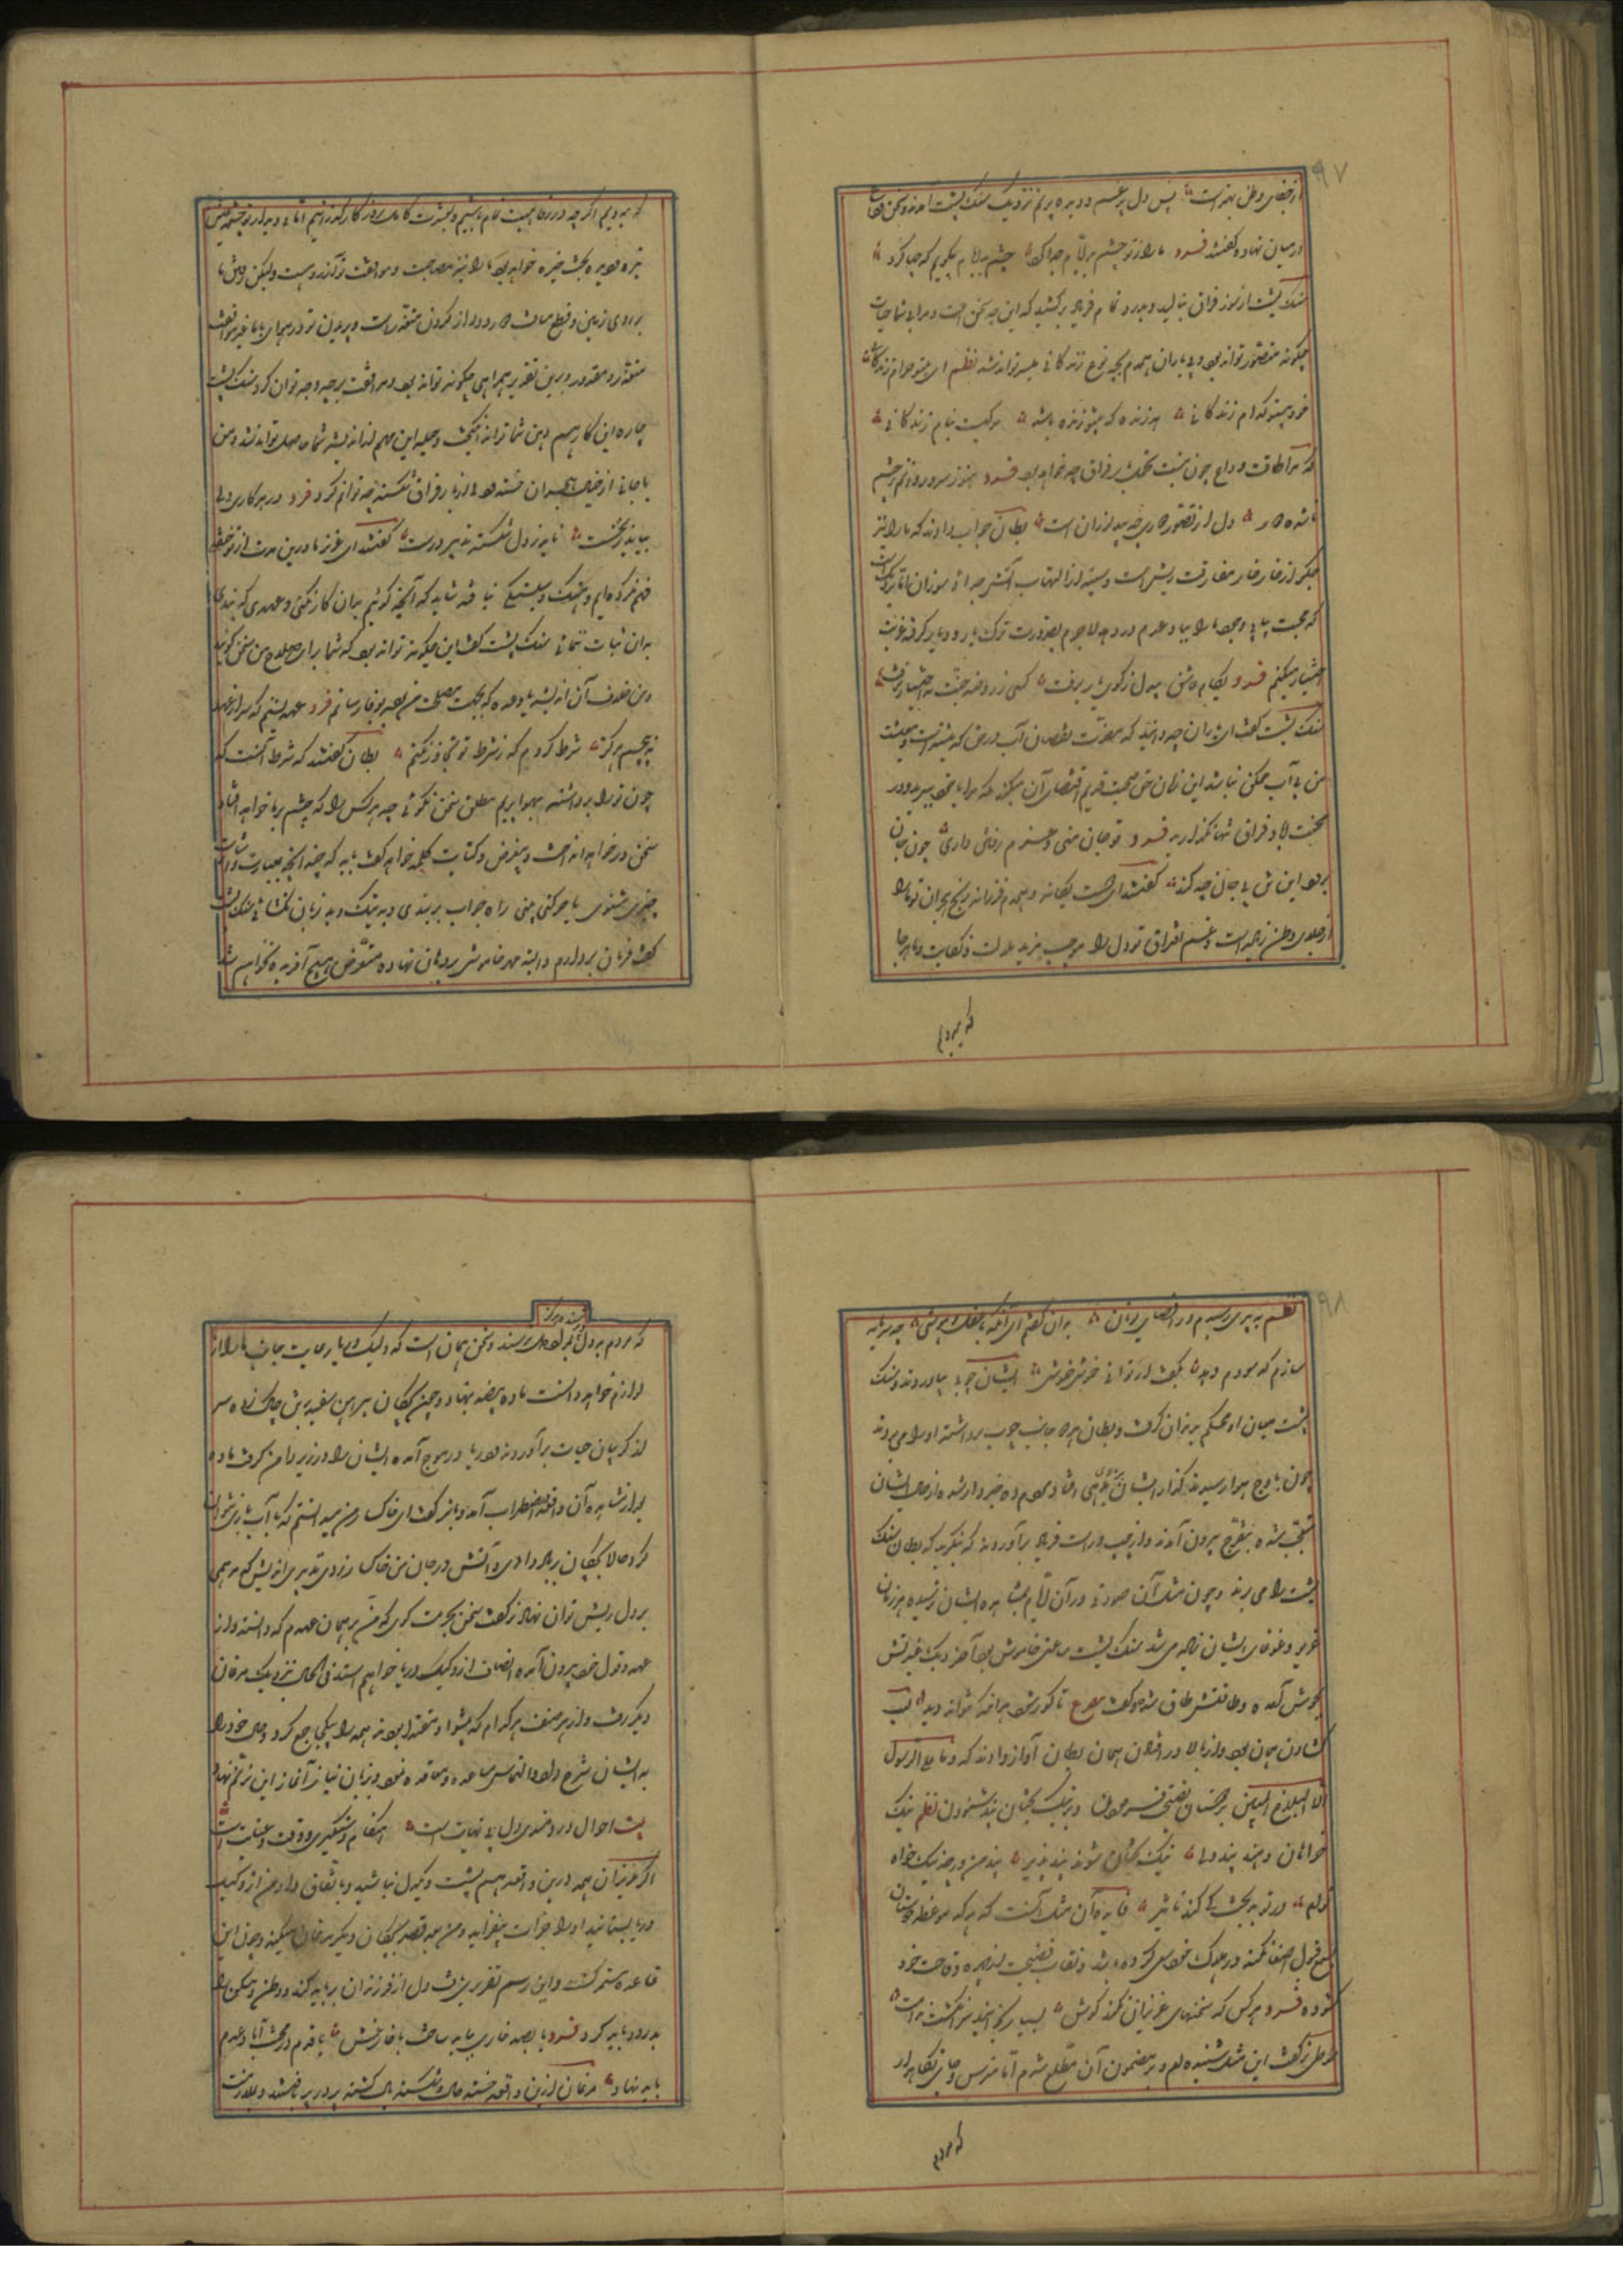 ۹۷
از جفای وطن بهتر است پس دل پر غم و دیده پر نم نزدیک سنک پشت آمدند و سخن وداع
در میان نهاده گفتند فرد ما را ز تو چشم بد ایام جدا کرد چشم بد ایام چگویم که چها کرد
سنک پشت از سوز فراق بنالید و بدرد تمام فریاد برکشید که این چه سخن است و مرا بی شما حیات
چگونه متصور تواند بود و بی یاران همدم بچه نوع زندگانی میسر تواند شد نظم ای بیتو حرام زندگانی
خود بیتو کدام زندگانی هر زنده که بیتو زنده باشد مرگیست بنام زندگانی
که مرا طاقت وداع چون نیست تحمل بار فراق چه خواهد بود فرد هنوز سرو روانم ز چشم
ناشده دور دل از تصور دوری چو بید لرزان است بطان جواب دادند که ما را نیز
جگر از خار خار مفارقت ریش است و سینه از التهاب آتش جدائی سوزان اما نزدیکست
که محنت بی آبی وجود ما را بباد عدم در دهد لاجرم بضرورت ترک یار و دیار گرفته غربت
اختیار میکنم فرد بکام عاشق بیدل ز کوی یار برفت کسی ز روضه جنت باختیار نرفت
سنک پشت گفت ای یاران چه دانید که مضرت نقصان آب در من که بیشتر است و معیشت
من بی آب ممکن نباشد این زمان حق صحبت قدیم اقتضای آن میکند که مرا با خود ببرید و در
محنت آباد فراق تنها نگذارید فرد تو جان منی و عزم رفتن داری چون جان
برود این تن بی جان چه کند گفتند ای دوست یگانه و همدم فرزانه رنج هجران تو ما را
از جلای وطن زیاده است و غم افتراق تو دل را موجب مزید ملالت و نکایت و ما هر جا
که میرویم
که میرویم اگر چه در رفاهیت تمام باشیم و بعشرت کامل روزگار گذرانیم اما بی دیدار تو چشم عیش
تیره و دیده بخت خیره خواهد بود ما را نیز مصاحبت و موافقت تو آرزوست و لیکن رفتن ما
بر روی زمین و قطع مسافت دور و دراز کردن متعذر است و پریدن تو در هوای با ما نیز موافقت
متعذر و مقدور و برین تقدیر همراهی چگونه تواند بود و مرافقت بر چه وجه توان کرد سنک پشت
چاره این کار هم ذهن شما تواند انگیخت و حیله این مهم از اندیشه شما حاصل تواند شد و من
با جانی از خیال هجران خسته و دلی از بار فراق شکسته چه توانم کرد فرد در هر کاری دلی
بباید درست ناید ز دل شکسته تدبیر درست گفتند ای عزیز ما درین مدت از تو خفت
فهم کرده ایم و سبکی نیافته شاید که آنچه گوئیم بدان کار نکنی و عهدی که بندی
بدان ثبات ننمائی سنک پشت گفت این چگونه تواند بود که شما برای صلاح من سخن گوئید
و من خلاف آن اندیشم یا وعده که بجهت مصلحت من بود بوفا نرسانم فرد عهد بستم که سر از عهد
نپیچم هرگز شرط کردم که ز شرط تو تجاوز نکنم بطان گفتند که شرط آنست که
چون ترا برداشته بهوا بریم مطلق سخن نگوئی چه هر کس را که چشم بر ما خواهد افتاد
سخن در خواهد انداخت و بتعریض و کنایت کلمه خواهد گفت باید که چندانچه بعبارت و اشارت
چیزی شنوی یا حرکتی بینی راه جواب بربندی و به نیک و بد زبان نکشائی سنک پشت
گفت فرمان بردارم و البته مهر خاموشی بر دهان نهاده متعرض هیچ آفریده نخواهم شد
۹۸
نظم به پیری رسیدم در اقصای یونان بدان گفتم ای آنکه با عقل و هوشی چه سرمایه
سازم که سودم دهد بگفت ار توانی خموشی خموشی ایشان چوبی بیاوردند و سنک
پشت میان او محکم بدندان گرفت و بطان هر دو جانب چوب برداشته او را می بردند
چون باوج هوا رسیدند گذار ایشان بر دهی افتاد مردم ده خبردار شده از حال ایشان
متعجب شده بتفرج بیرون آمدند و از چپ و راست فریاد برآوردند که بنگرید که بطان سنک
پشت را می برند و چون مثل آن صورتی در آن ایام بمشاهده ایشان نرسیده هر زمان
غریو و غوغای ایشان زیاده می شد سنک پشت ساعتی خاموش بود آخر دیک غیرتش
بجوش آمده و طاقتش طاق شد و گفت مصرع تا کور شود هر آنکه نتواند دید لب
گشادن همان بود و از بالا در افتادن همان بطان آواز دادند که و ما علی الرسول
الا البلاغ المبین بر دوستان نصیحتی فرمودن و بر نیک بختان پند شنودن نظم نیک
خواهان دهند پند ولی نیک بختان شوند پند پذیر پند من ورچه نیک خواه
توام در تو بدبخت کی کند تاثیر فایده آن مثل آنست که هر که موعظه دوستان
بسمع قبول اصغا نکند در هلاک خود سعی کرده باشد و نقاب فضیحت از چهره وقاحت خود
گشوده فرد هر کس که سخنهای عزیزان نکند گوش بسیار بخاید سر انگشت ندامت
طیطوی نر گفت این مثل شنیدم و بر مضمون آن مطلع شدم اما مترس و جای نگاهدار
که مردم
ترسنده هرگز
که مردم بددل هرگز بمراد نرسند و سخن همان است که وکیل دریا رعایت جانب ما را از
لوازم خواهد دانست ماده بیضه نهاد و چون بچگان پیراهن سفید بیش چاک زده سر
از گریبان حیات برآوردند دریا در موج آمده ایشان را در زیر دامن گرفت ماده
بعد از مشاهده آن واقعه باضطراب آمد و با نر گفت ای خاکسار من میدانستم که با آب بازی نتوان
کرد حالا بچگان بر باد دادی و آتش در جان من خاکسار زدی تدبیری اندیش که مرهمی
بر دل ریش توان نهاد نر گفت سخن بحرمت گوی که من بر همان عهدم که دانسته و از
عهده قول خود بیرون آمده انصاف از وکیل دریا خواهم استد فی الحال نزدیک مرغان
دیگر رفت و از هر صنف هر کدام که پیشوا و مقتدا بودند همه را یکجا جمع کرد و حال خود را
به ایشان شرح داد و التماس مساعده و معاقده نمود و بزبان نیاز آغاز این ترنم نهاد
بیت احوال دردمندی دل بی نهایت است هنگام دستگیری و وقت عنایت است
اگر عزیزان همه درین واقعه هم پشت و یکدل نباشید و باتفاق داد من از وکیل
دریا نستانید او را جرأت بیفزاید و من بعد قصد بچگان دیگر مرغان میکند و چون این
قاعده مستمر گشت و این رسم تقرر یافت دل از فرزندان بباید کند و وطن و مسکن را
بدرود باید کرد فرد یا بصد خاری بباید ساخت با خار غمش یا قدم در محنت آباد عدم
باید نهاد مرغان ازین واقعه خسته حال و شکسته بال گشته پر در پر بافتند و بملازمت